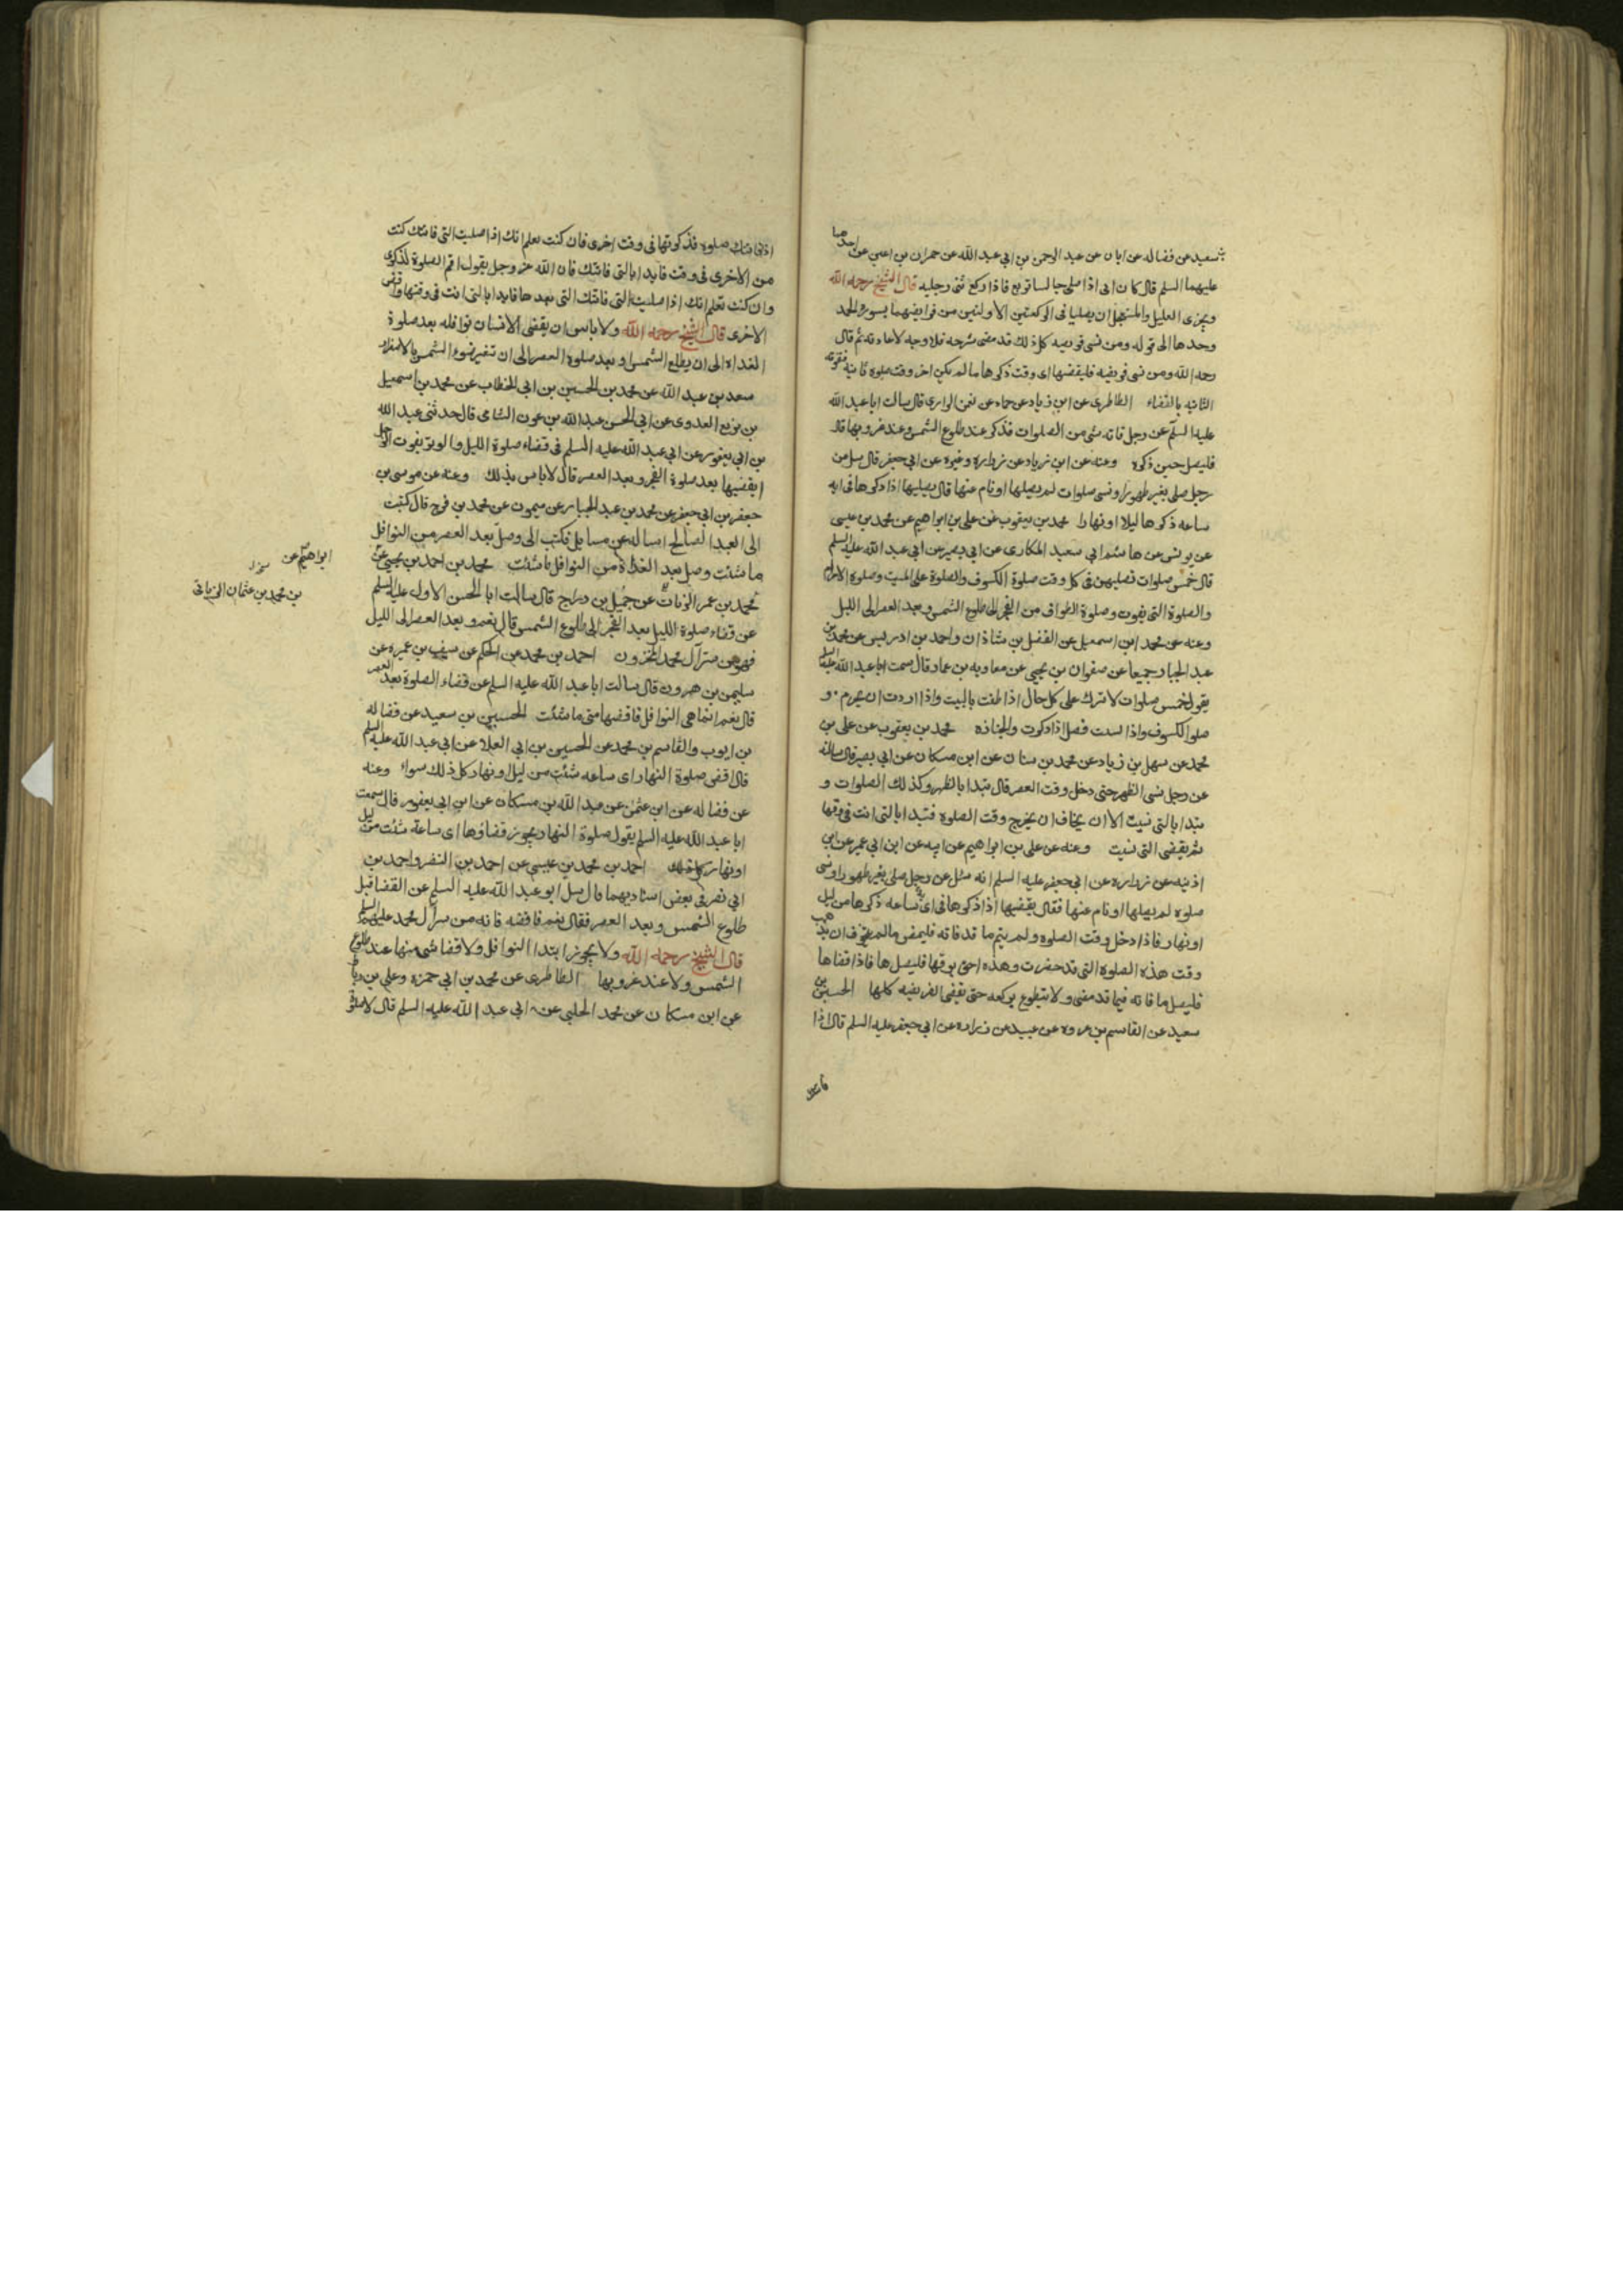 بن سعيد عن فضاله عن ابان عن عبد الرحمن بن ابي عبد الله عن حمران بن اعين عن احدهما
عليهما السلم قال كان ابى اذا صلى جالسا تربع فاذا ركع ثنى رجليه قال الشيخ رحمه الله
ويجزى العليل والمستعجل ان يصليا فى الركعتين الاولتين من فرايضهما بسورة الحمد
وحدها الى قوله ومن نسى فريضه كل ذلك قد مضى شرحه فلا وجه لاعادته ثم قال
رحمه الله ومن نسى فريضه فليقضها اى وقت ذكرها ما لم يكن اخر وقت صلوة ثانية فتفوته
الثانيه بالقضاء الطاطرى عن ابن زياد عن حماد عن نعمن الرازى قال سالت ابا عبد الله
عليه السلم عن رجل فاته شى من الصلوات فذكر عند طلوع الشمس وعند غروبها قال
فليصل حين ذكره وعنه عن ابن زياد عن زراره وغيره عن ابي جعفر قال سل عن
رجل صلى بغير طهور او نسى صلوات لم يصلها او نام عنها قال يصليها اذا ذكرها فى ايه
ساعه ذكرها ليلا او نهارا محمد بن يعقوب عن على بن ابراهيم عن محمد بن عيسى
عن يونس عن هاشم ابي سعيد المكارى عن ابي بصير عن ابي عبد الله عليه السلم
قال خمس صلوات تصليهن فى كل وقت صلوة الكسوف والصلوة على الميت وصلوة الاحرام
والصلوة التى تفوت وصلوة الطواف من الفجر الى طلوع الشمس وبعد العصر الى الليل
وعنه عن محمد ابن اسمعيل عن الفضل بن شاذان واحمد بن ادريس عن محمد بن
عبد الجبار جميعا عن صفوان بن يحيى عن معاويه بن عمار قال سمعت ابا عبد الله عليه السلم
يقول خمس صلوات لا تترك على كل حال اذا طفت بالبيت واذا اردت ان تحرم و
صلوة الكسوف واذا نسيت فصل اذا ذكرت والجنازه محمد بن يعقوب عن على بن
محمد عن سهل بن زياد عن محمد بن سنان عن ابن مسكان عن ابي بصير قال سالته
عن رجل نسى الظهر حتى دخل وقت العصر قال يبتدا بالظهر وكذلك الصلوات و
يبتدا بالتى نسيت الا ان يخاف ان يخرج وقت الصلوة فتبدا بالتى انت فى وقتها
ثم يقضى التى نسيت وعنه عن على بن ابراهيم عن ابيه عن ابن ابي عمير عن ابن
اذينه عن زراره عن ابي جعفر عليه السلم انه سئل عن رجل صلى بغير طهور او نسى
صلوه لم يصلها او نام عنها فقال يقضيها اذا ذكرها فى اى ساعه ذكرها من ليل
او نهار فاذا دخل وقت الصلوه ولم يتم ما قد فاته فليمض ما لم يتخوف ان يذهب
وقت هذه الصلوة التى قد حضرت وهذه احق بوقتها فليصلها فاذا قضاها
فليصل ما فاته فيما قد مضى ولا يتطوع بركعه حتى يقضى الفريضه كلها الحسين بن
سعيد عن القاسم بن عروه عن عبيد بن زراره عن ابي جعفر عليه السلم قال اذا
فاتتك
اذا فاتتك صلوه فذكرتها فى وقت اخرى فان كنت تعلم انك اذا صليت التى فاتتك كنت
من الاخرى فى وقت فابدا بالتى فاتتك فان الله عز وجل يقول اقم الصلوة لذكرى
وان كنت تعلم انك اذا صليت التى فاتتك التى بعدها فابدا بالتى انت فى وقتها واقض
الاخرى قال الشيخ رحمه الله ولا باس ان يقضى الانسان نوافله بعد صلوة
الغداه الى ان يطلع الشمس وبعد صلوة العصر الى ان تتغير ضوء الشمس بالاصفرار
سعد بن عبد الله عن محمد بن الحسين بن ابي الخطاب عن محمد بن اسمعيل
بن بزيع العدوى عن ابي الحسن عبد الله بن عون الشامى قال حدثنى عبد الله
بن ابي يعفور عن ابي عبد الله عليه السلم فى قضاء صلوة الليل والوتر يفوت الرجل
ايقضيها بعد صلوة الفجر وبعد العصر قال لا باس بذلك وعنه عن موسى بن
جعفر بن ابي جعفر عن محمد بن عبد الجبار عن ميمون عن محمد بن فرج قال كتبت
الى العبد الصالح اساله عن مسايل فكتب الى وصل بعد العصر من النوافل
ما شئت وصل بعد الغداة من النوافل ما شئت محمد بن احمد بن يحيى عن
ابراهيم عن
بن محمد بن عثمان الزياتى
محمد بن عمر الزيات عن جميل بن دراج قال سالت ابا الحسن الاول عليه السلم
عن قضاء صلوة الليل بعد الفجر الى طلوع الشمس قال نعم وبعد العصر الى الليل
فهو من سر آل محمد المخزون احمد بن محمد عن الحكم عن سيف بن عميره عن
سليمن بن هرون قال سالت ابا عبد الله عليه السلم عن قضاء الصلوة بعد العصر
قال نعم انما هى النوافل فاقضها متى ما شئت الحسين بن سعيد عن فضاله
بن ايوب والقاسم بن محمد عن الحسين بن ابي العلا عن ابي عبد الله عليه السلم
قال اقض صلوة النهار اى ساعه شئت من ليل او نهار كل ذلك سواء وعنه
عن فضاله عن ابن عثمن عن عبد الله بن مسكان عن ابن ابي يعفور قال سمعت
ابا عبد الله عليه السلم يقول صلوة النهار يجوز قضاؤها اى ساعة شئت من ليل
او نهار احمد بن محمد بن عيسى عن احمد بن النضر واحمد بن
ابي نصر فى بعض اسناديهما قال سل ابو عبد الله عليه السلم عن القضا قبل
طلوع الشمس وبعد العصر فقال نعم فاقضه فانه من سر آل محمد عليهم السلم
قال الشيخ رحمه الله ولا يجوز ابتدا النوافل ولا قضا شى منها عند طلوع
الشمس ولا عند غروبها الطاطرى عن محمد بن ابي حمزه وعلى بن رباط
عن ابن مسكان عن محمد الحلبى عن ابي عبد الله عليه السلم قال لا صلوة